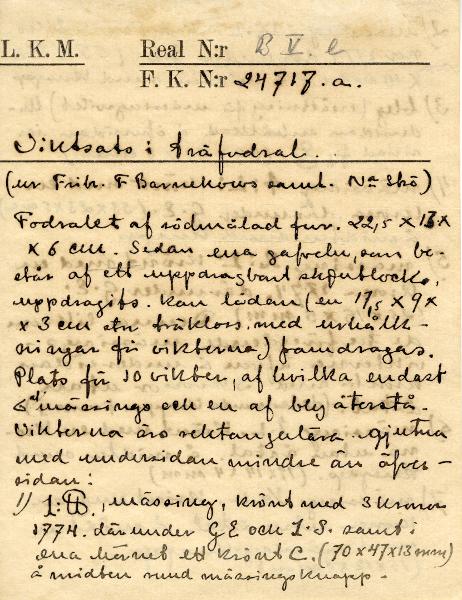 L. K. M. Real N:r B V. e
F. K. N:r 24717. a.
Viktsats i träfodral.
(ur Frih. F Barnekows saml. Na Skö)
Fodralet af rödmålad fur. 22,5 × 13 ×
× 6 cm. Sedan ena gafveln, som be-
står af ett uppdragbart skjutlock,
uppdragits. kan lådan (en 17,5 × 9 ×
× 3 cm stor träkloss, med urhålk-
ningar för vikterna) framdragas.
Plats för 10 vikter, af hvilka endast
6 st mässings och en af bly återstå.
Vikterna äro rektangulära. gjutna
med undersidan mindre än öfver-
sidan:
1) 1: ℔., mässing, krönt med 3 kronor
1774. därunder G E och I. S. samt i
ena hörnet ett krönt C. (70 × 47 × 13 mm)
å midten rund mässingsknapp.-